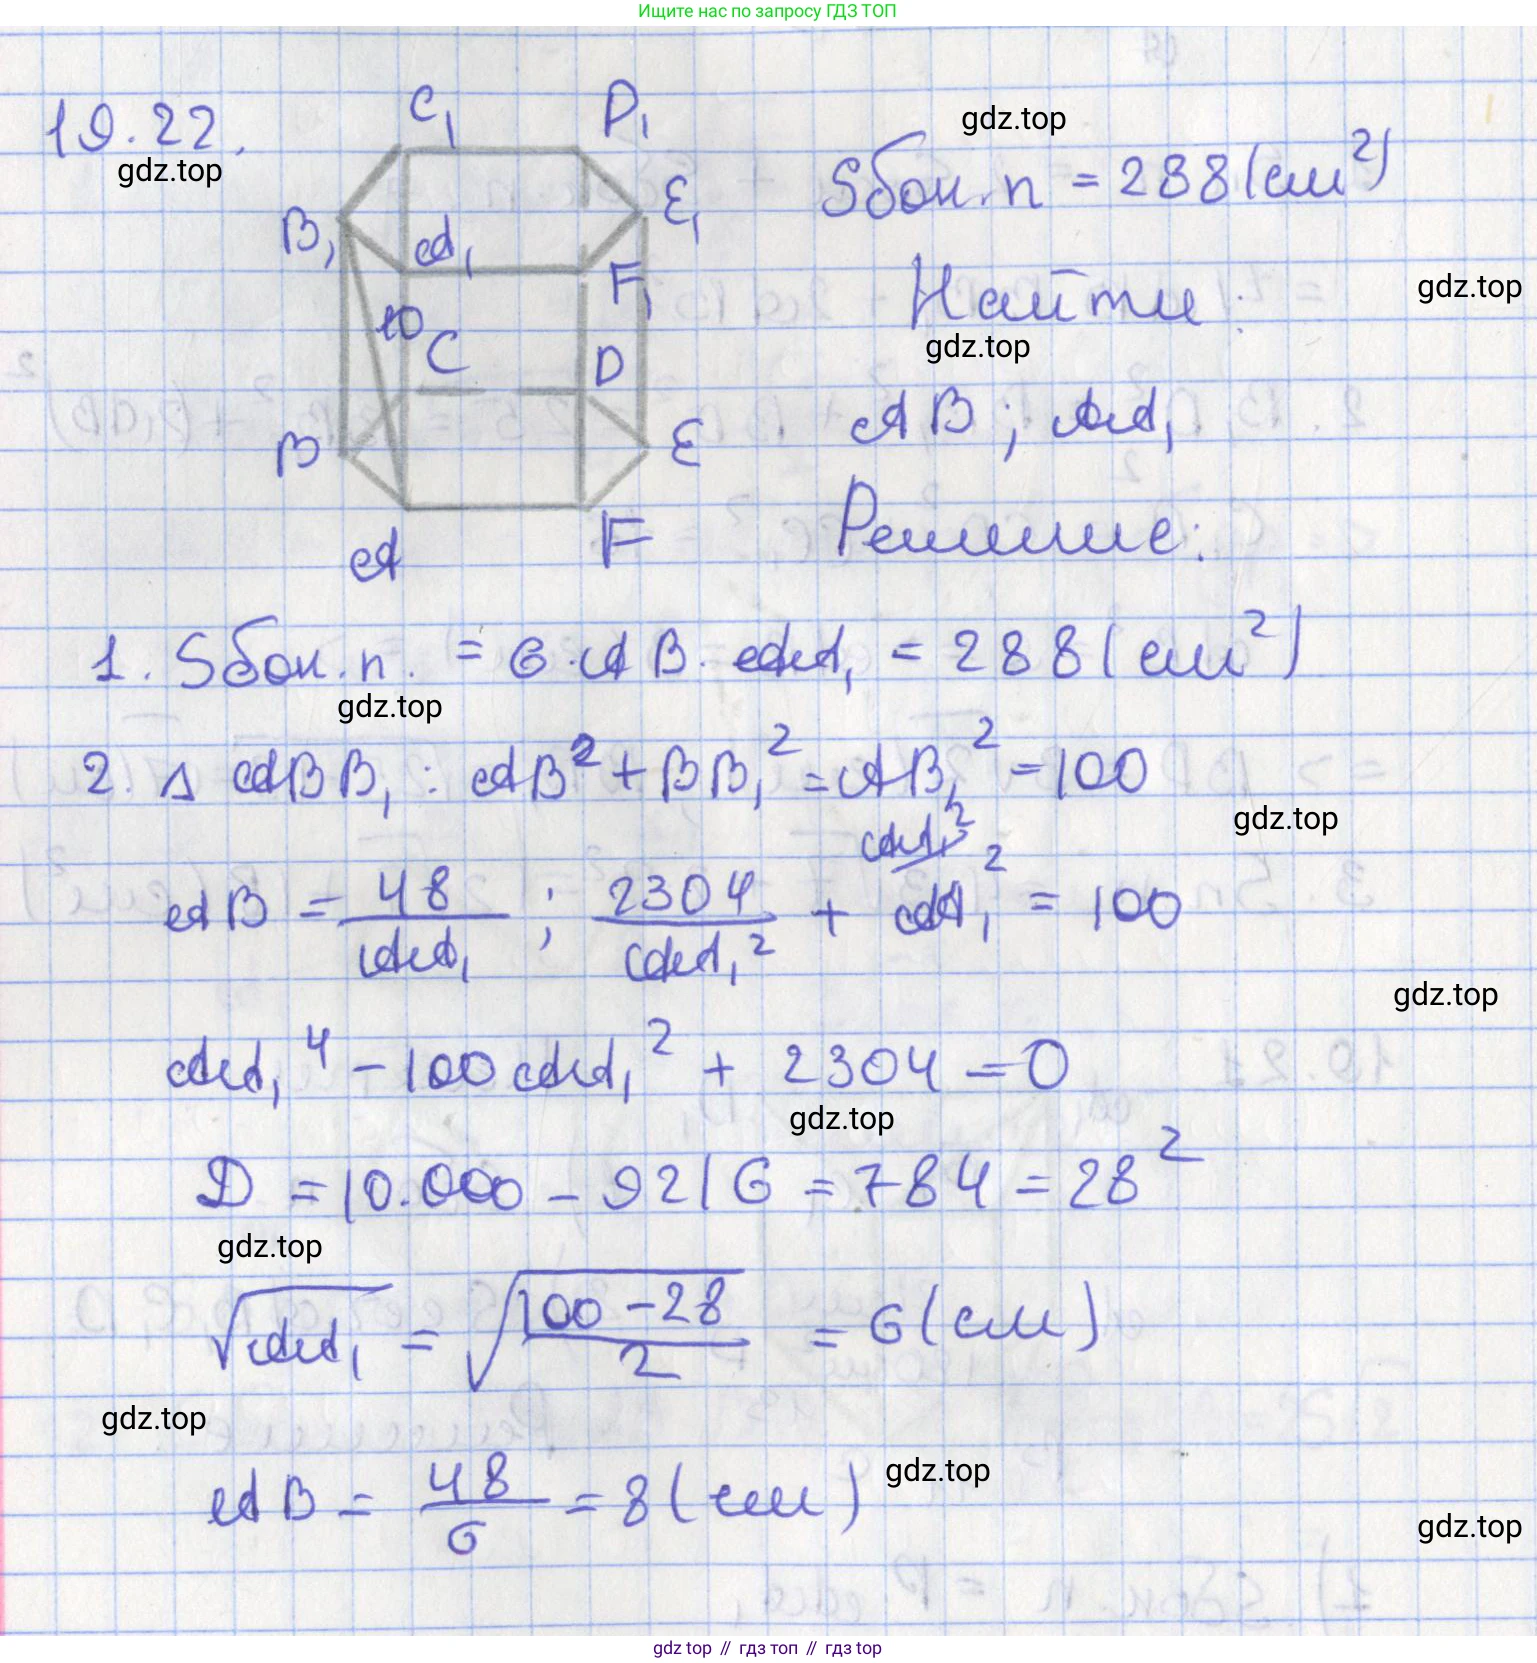 Ищите нас по запросу ГДЗ ТОП
19.22.
gdz.top
C₁ D₁
B₁ A₁ E₁
F₁
10
C D
B E
A F
gdz.top
Sбок.п = 288 (см²)
Найти:
gdz.top
gdz.top
AB; AA₁
Решение:
1. Sбок.п. = 6·AB·AA₁ = 288 (см²)
gdz.top
2. Δ ABB₁: AB² + BB₁² = AB₁² = 100
gdz.top
AA₁²
AB = 48/AA₁ ; 2304/AA₁² + AA₁² = 100
gdz.top
AA₁⁴ - 100AA₁² + 2304 = 0
gdz.top
D = 10.000 - 9216 = 784 = 28²
gdz.top
√AA₁ = √(100-28)/2 = 6 (см)
gdz.top
AB = 48/6 = 8 (см)
gdz.top
gdz.top
gdz top // гдз топ // гдз top